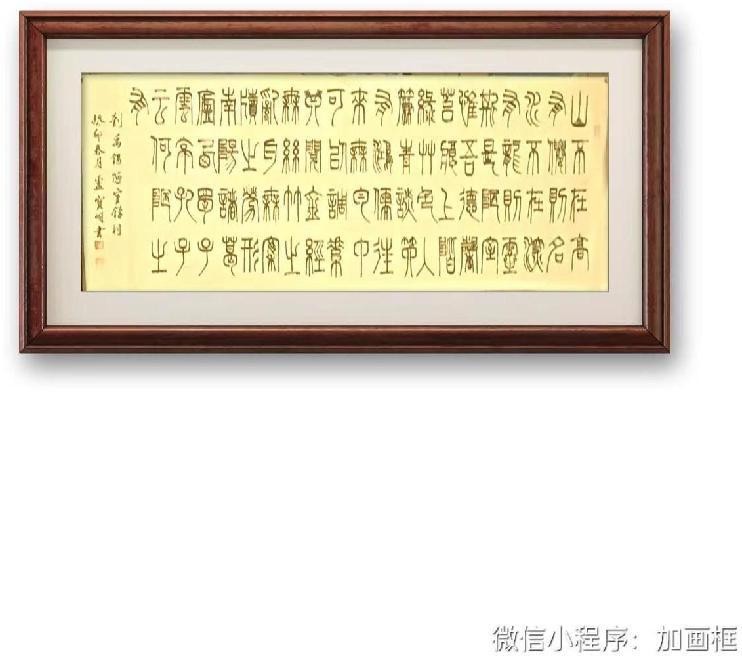 山不在高
有僊則名
水不在深
有龍則靈
斯是陋室
惟吾德馨
苔痕上階
綠艸色入
簾青談笑
有鴻儒往
來無白丁
可以調素
琴閱金經
無絲竹之
亂耳無案
牘之勞形
南陽諸葛
廬西蜀子
雲亭孔子
云何陋之
有
劉禹錫陋室銘
癸卯春月盧寶書
微信小程序：加画框